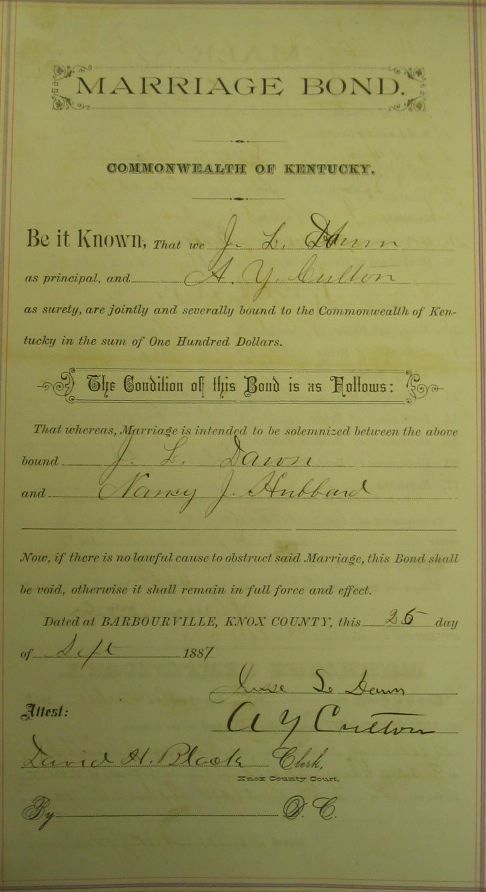 MARRIAGE BOND.
COMMONWEALTH OF KENTUCKY.
Be it Known, That we J. L. Dawn
as principal, and A. Y. Culton
as surety, are jointly and severally bound to the Commonwealth of Ken-
tucky in the sum of One Hundred Dollars.
The Condition of this Bond is as Follows:
That whereas, Marriage is intended to be solemnized between the above
bound J. L. Dawn
and Nancy J. Hubbard
Now, if there is no lawful cause to obstruct said Marriage, this Bond shall
be void, otherwise it shall remain in full force and effect.
Dated at BARBOURVILLE, KNOX COUNTY, this 26 day
of Sept 1887
Dawn
Attest:
A Y Culton
David H. Black Clerk,
Knox County Court.
By D. C.